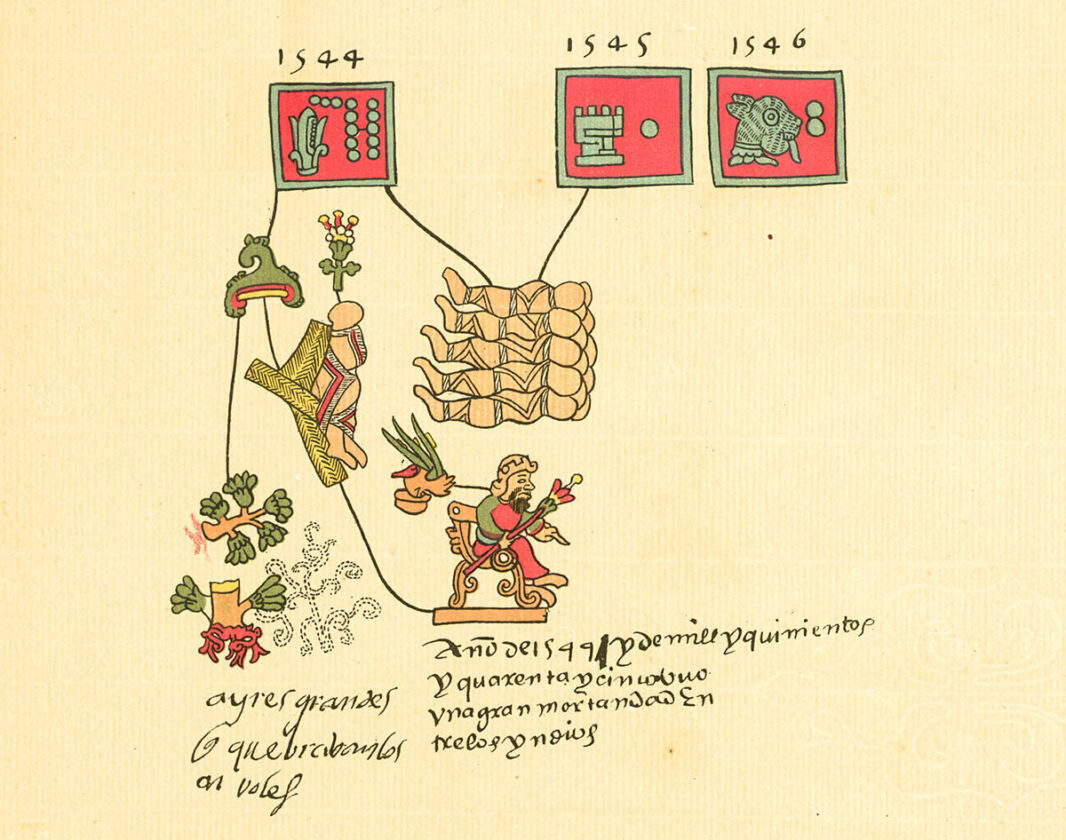 1544
1545
1546
Año de 1544 / y de mill y quinientos
y quarenta y cinco buo
vna gran mortandad En
tre los yndios
ayres grandes
q̃ quebrabanlos
arvoles